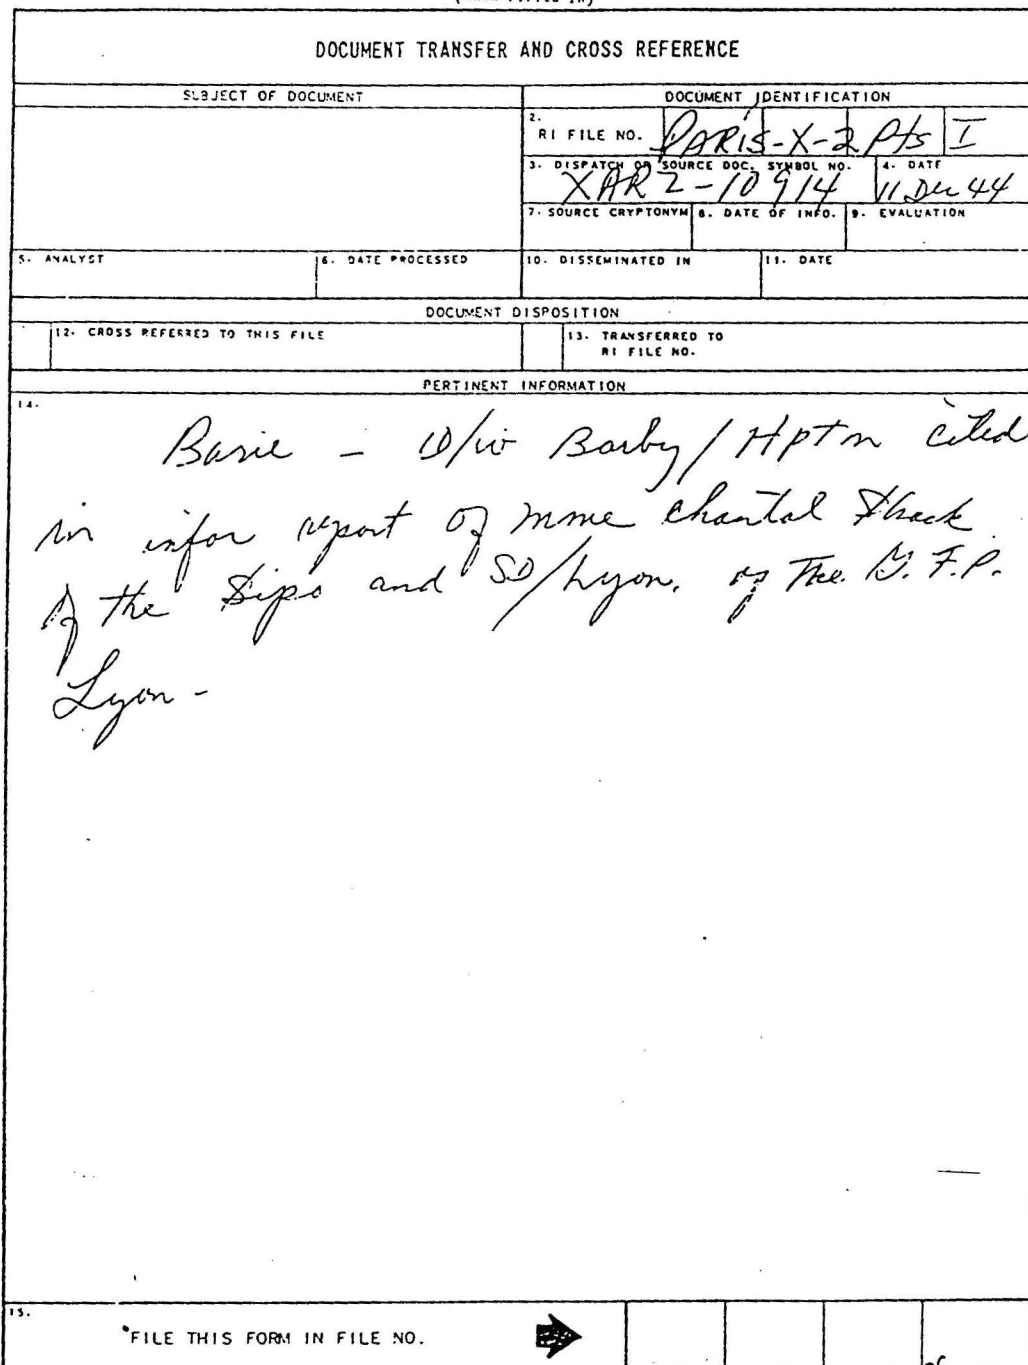 DOCUMENT TRANSFER AND CROSS REFERENCE
SUBJECT OF DOCUMENT
DOCUMENT IDENTIFICATION
2.
RI FILE NO. PARIS-X-2 Pts I
3. DISPATCH OR SOURCE DOC. SYMBOL NO.
4. DATE
XARZ-10914
11 Dec 44
7. SOURCE CRYPTONYM
8. DATE OF INFO.
9. EVALUATION
5. ANALYST
6. DATE PROCESSED
10. DISSEMINATED IN
11. DATE
DOCUMENT DISPOSITION
12. CROSS REFERRED TO THIS FILE
13. TRANSFERRED TO
RI FILE NO.
PERTINENT INFORMATION
14.
Barie - Barby/Hptm cited
in infor report of Mme Chantal
of the Sipo and SD/Lyon, of The G.F.P.
Lyon-
15.
FILE THIS FORM IN FILE NO.